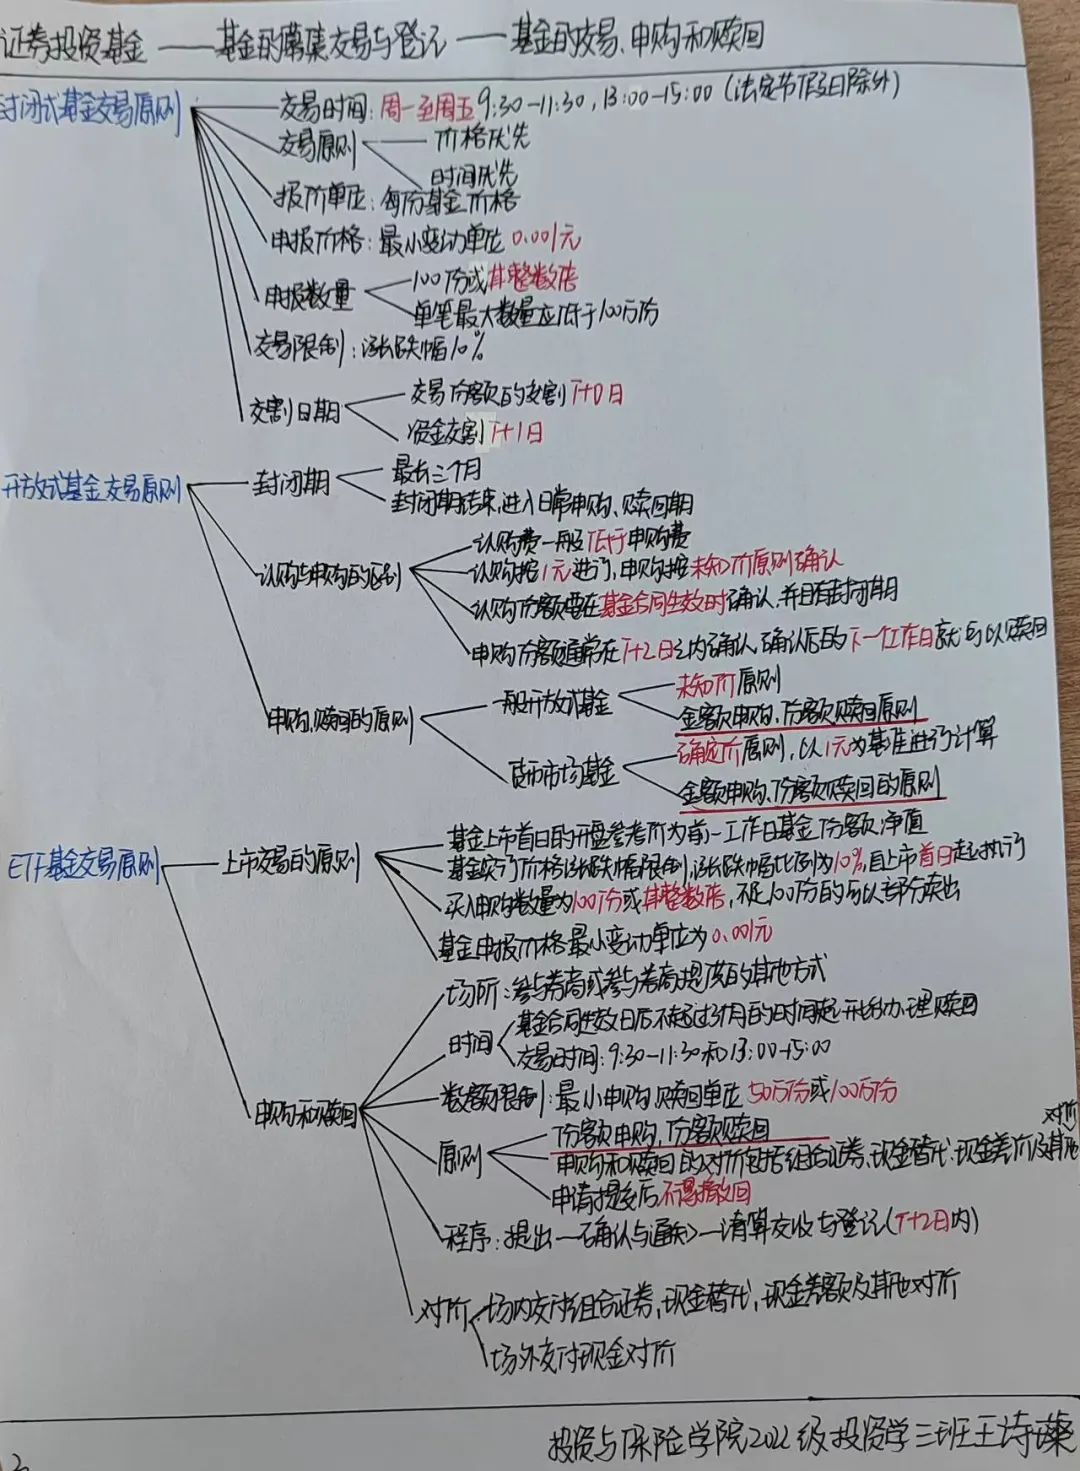 证券投资基金 —— 基金的募集交易与登记 —— 基金的交易、申购和赎回
封闭式基金交易原则
交易时间：周一至周五 9:30-11:30, 13:00-15:00 (法定节假日除外)
交易原则
价格优先
时间优先
报价单位：每份基金价格
申报价格：最小变动单位 0.001元
申报数量
100份或其整数倍
单笔最大数量应低于100万份
交易限制：涨跌幅10%
交割日期
交易份额的交割 T+0日
资金交割 T+1日
开放式基金交易原则
封闭期
最长三个月
封闭期结束，进入日常申购、赎回期
认购与申购的区别
认购费一般低于申购费
认购按1元进行，申购按未知价原则确认
认购份额要在基金合同生效时确认，并且有封闭期
申购份额通常在T+2日之内确认，确认后的下一个工作日就可以赎回
申购、赎回的原则
一般开放式基金
未知价原则
金额申购、份额赎回原则
货币市场基金
确定价原则，以1元为基准进行计算
金额申购、份额赎回的原则
ETF基金交易原则
上市交易的原则
基金上市首日的开盘参考价为前一工作日基金份额净值
基金实行价格涨跌幅限制，涨跌幅比例为10%，自上市首日起执行
买入申购数量为100份或其整数倍，不足100份的可以部分卖出
基金申报价格最小变动单位为0.001元
申购和赎回
场所：参与券商或参与券商提供的其他方式
时间
基金合同生效日后不超过3个月的时间起开始办理赎回
交易时间：9:30-11:30和13:00-15:00
数额限制：最小申购、赎回单位50万份或100万份
原则
份额申购，份额赎回
申购和赎回的对价包括组合证券、现金替代、现金差价及其他
对价
申请提交后不得撤回
程序：提出—确认与通知—清算交收与登记(T+2日内)
对价
场内交付组合证券，现金替代，现金差额及其他对价
场外交付现金对价
投资与保险学院2022级投资学三班王诗璨